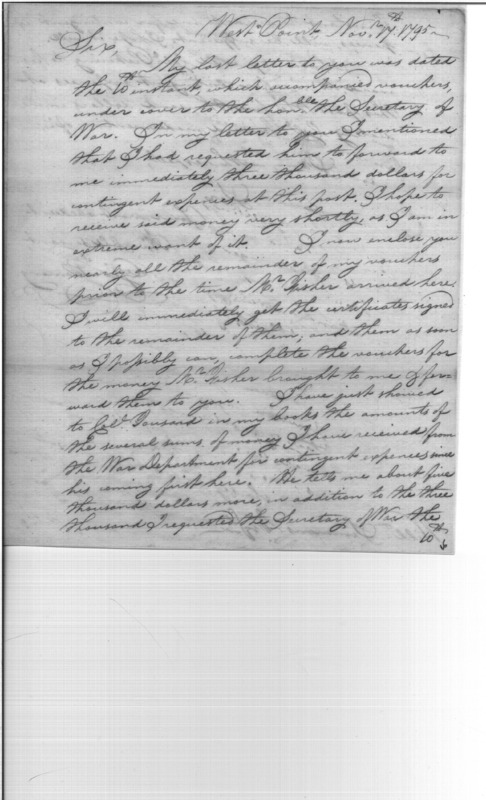 West Point, Nov.r 17th 1795
Sir,
My last letter to you was dated
the 10th instant, which accompanied vouchers,
under cover to the hon.ble the Secretary of
War. In my letter to you I mentioned
that I had requested him to forward to
me immediately three thousand dollars for
contingent expenses at this post. I hope to
receive said money very shortly, as I am in
extreme want of it. I now enclose you
nearly all the remainder of my vouchers
prior to the time Mr. Fisher arrived here.
I will immediately get the certificates signed
to the remainder of them, and them as soon
as I possibly can, complete the vouchers for
the money Mr. Fisher brought to me & for-
ward them to you. I have just showed
to Col.
in my books the amounts of
the several sums of money I have received from
the War Department for contingent expences since
his coming first here. He tels me about five
thousand dollars more, in addition to the three
thousand I requested the Secretary of War the
10th